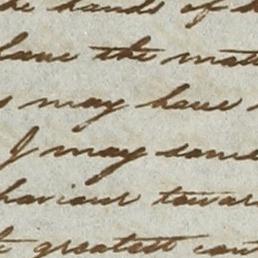 the hands of
have the matt
may have
I may some
haviour towar
greatest con